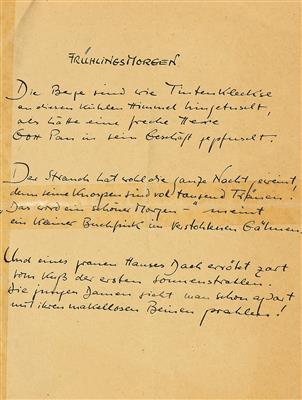 FRÜHLINGSMORGEN
Die Berge sind wie Tintenkleckse
an diesen kühlen Himmel hingetuscht,
als hätte eine freche Hexe
Gott Pan in sein Geschäft gepfuscht.
Der Strauch hat wohl die ganze Nacht geweint
denn seine Knospen sind voll tausend Tränen.
„Das wird ein schöner Morgen –" meint
ein kleiner Buchfink im verstohlenen Gähnen.
Und eines grauen Hauses Dach erröht zart
vom Kuß der ersten Sonnenstrahlen.
Die jungen Damen sieht man schon apart
mit ihren makellosen Beinen prahlen!